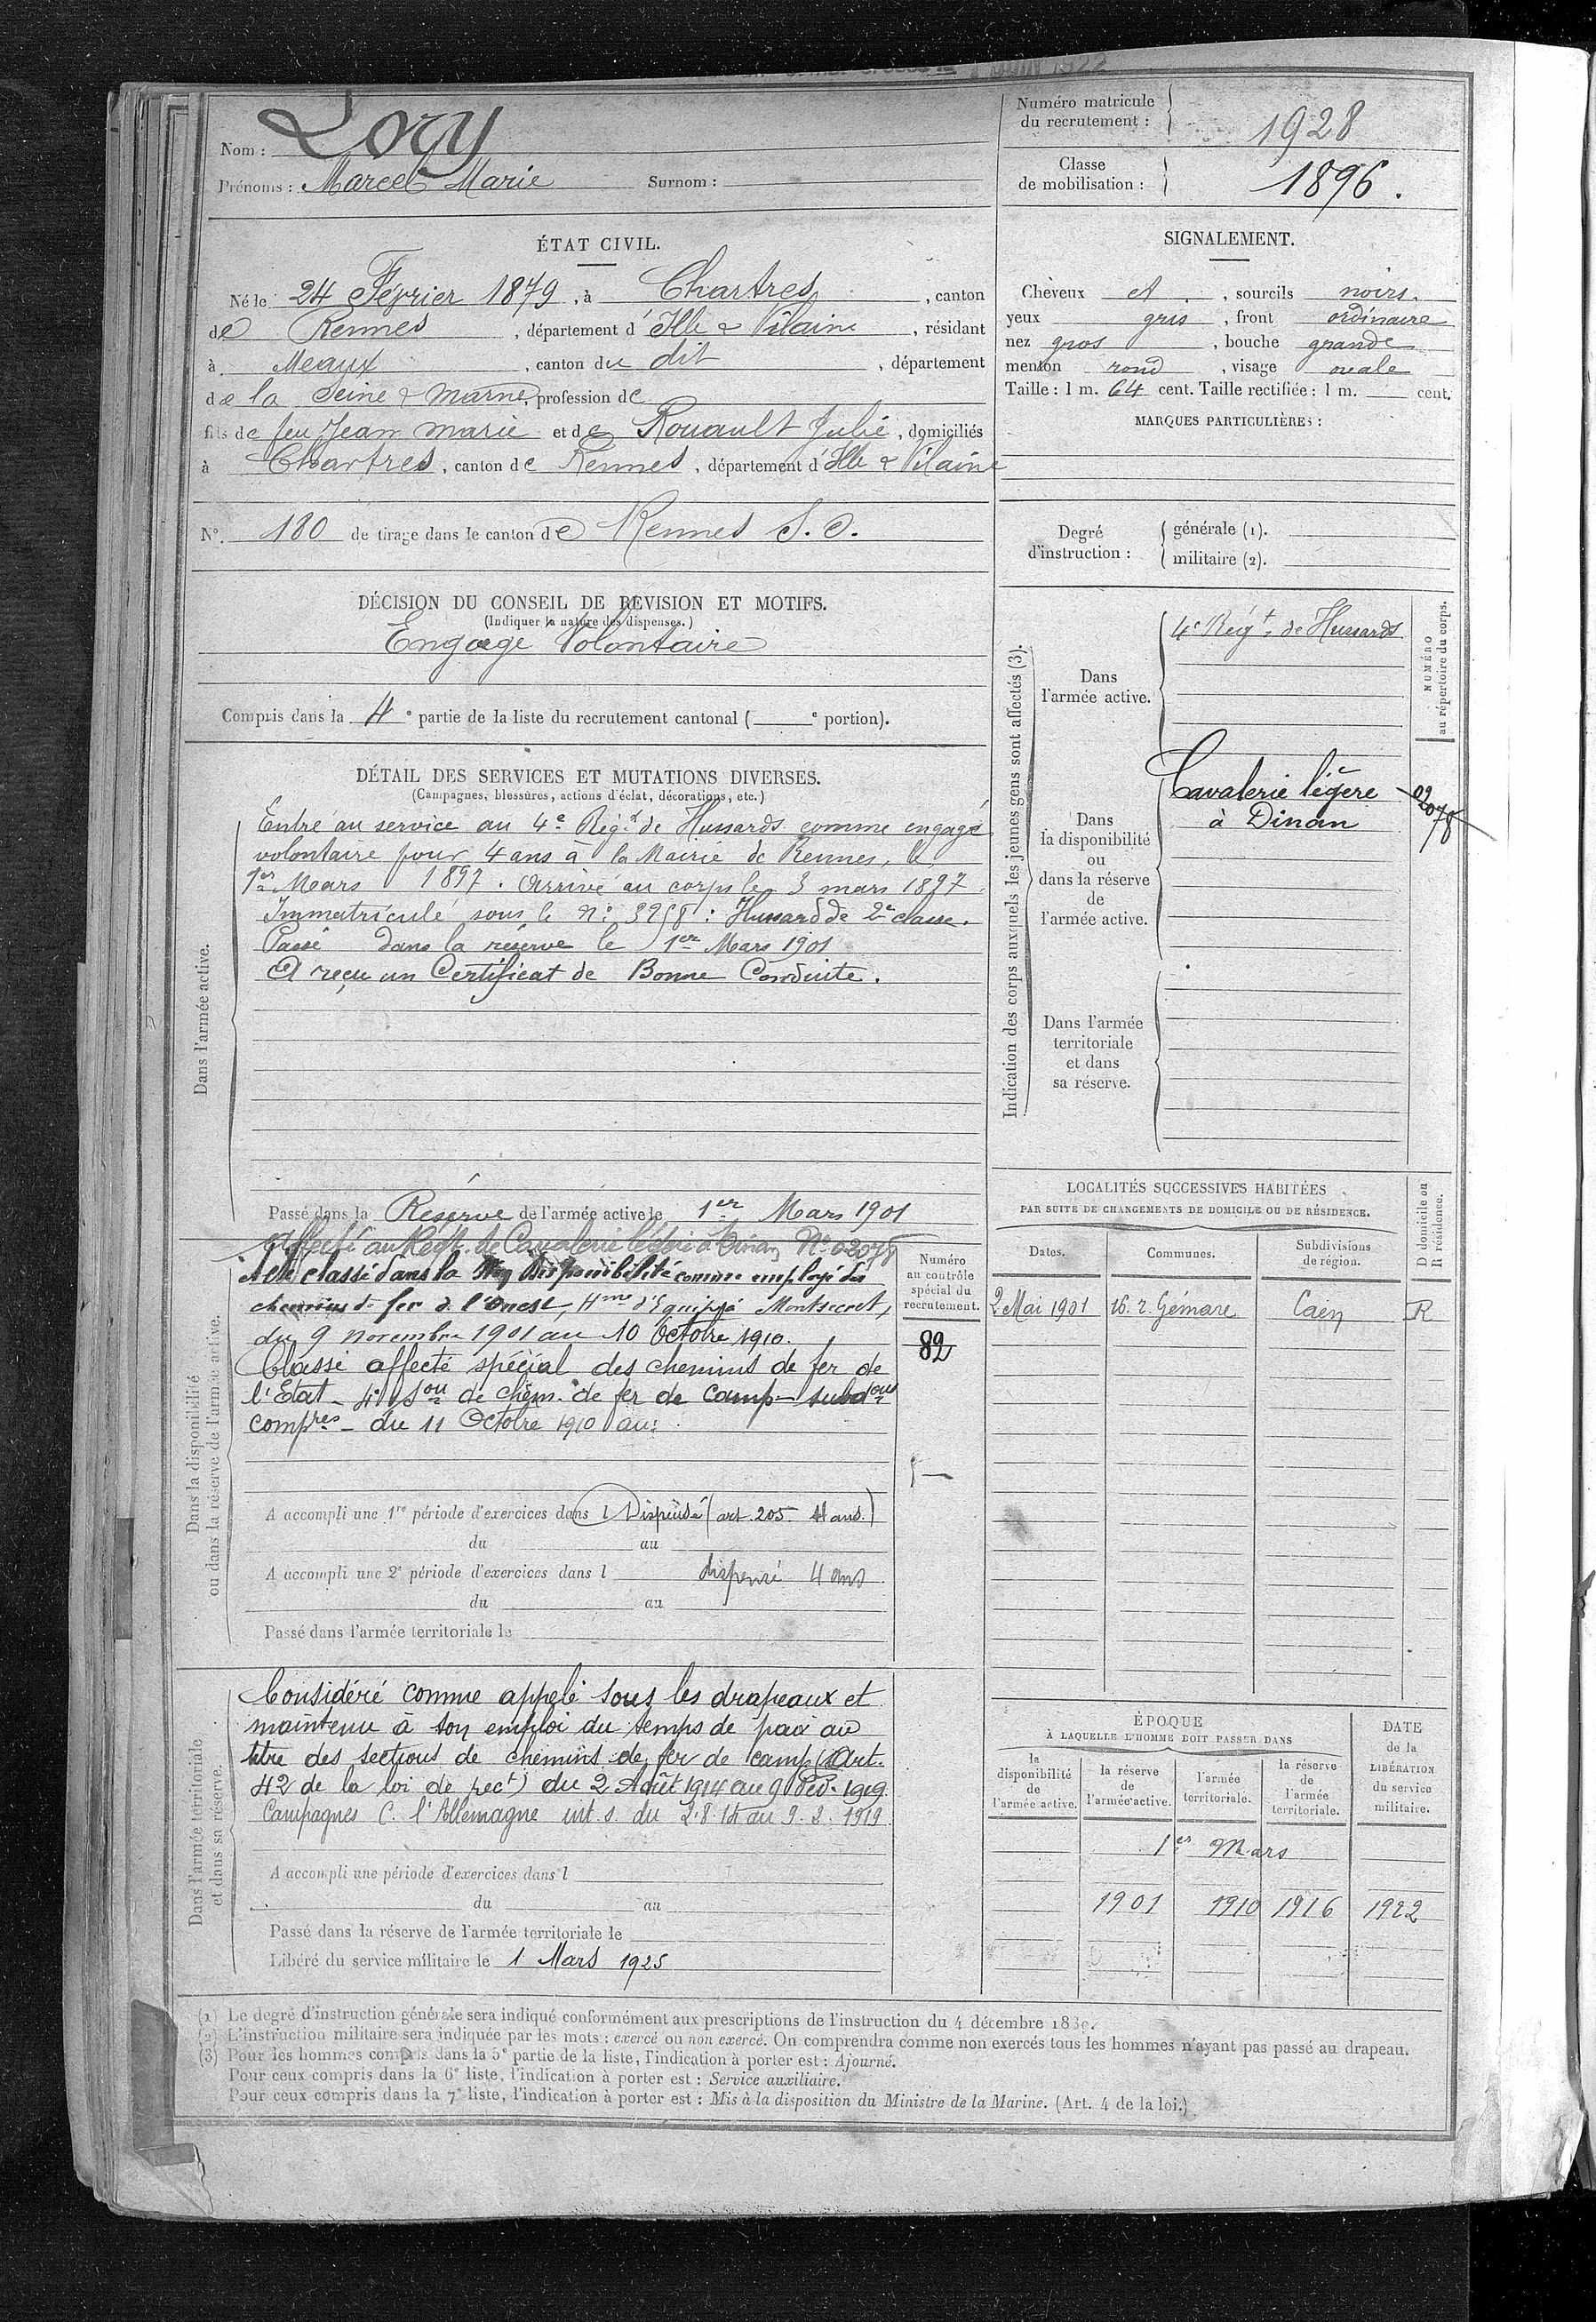 Nom : Lory
Prénoms : Marcel Marie Surnom :
Numéro matricule
du recrutement : 1928
Classe
de mobilisation : 1896.
ÉTAT CIVIL.
Né le 24 Février 1879, à Chartres, canton
de Rennes, département d'Ille & Vilaine, résidant
à Meaux, canton du dit, département
de la Seine & Marne, profession de
fils de feu Jean Marie et de Rouault Julie, domiciliés
à Chartres, canton de Rennes, département d'Ille & Vilaine
N° 180 de tirage dans le canton de Rennes S.O.
DÉCISION DU CONSEIL DE REVISION ET MOTIFS.
(Indiquer la nature des dispenses.)
Engagé Volontaire
Compris dans la 4e partie de la liste du recrutement cantonal ( e portion).
DÉTAIL DES SERVICES ET MUTATIONS DIVERSES.
(Campagnes, blessures, actions d'éclat, décorations, etc.)
Dans l'armée active.
Entré au service au 4e Régt de Hussards comme engagé
volontaire pour 4 ans à la Mairie de Rennes, le
1er Mars 1897. Arrivé au corps le 3 mars 1897.
Immatriculé sous le N° 3258 : Hussard de 2e classe.
Passé dans la réserve le 1er Mars 1901
A reçu un Certificat de Bonne Conduite.
Passé dans la Réserve de l'armée active le 1er Mars 1901
Dans la disponibilité
ou dans la réserve de l'armée active.
Affecté au Régt. de Cavalerie légère à Dinan N° 02078
A été classé dans la Disponibilité comme employé des
chemins de fer de l'Ouest, Hme d'équipe à Montsecret,
du 9 novembre 1901 au 10 Octobre 1910.
Classé affecté spécial des chemins de fer de
l'Etat - 4e Son de chem. de fer de camp - subdons
compres - du 11 Octobre 1910 au :
A accompli une 1re période d'exercices dans l Dispensé (art. 205. 4 ans.)
du au
A accompli une 2e période d'exercices dans l dispensé 4 ans
du au
Passé dans l'armée territoriale le
Numéro
au contrôle
spécial du
recrutement.
82
Dans l'armée territoriale
et dans sa réserve.
Considéré comme appelé sous les drapeaux et
maintenu à son emploi du temps de paix au
titre des sections de chemins de fer de camp (Art.
42 de la loi de rect) du 2 Août 1914 au 9 Fév. 1919
Campagnes C. l'Allemagne int. s. du 2.8.14 au 9.2.1919
A accompli une période d'exercices dans l
du au
Passé dans la réserve de l'armée territoriale le
Libéré du service militaire le 1 Mars 1925
SIGNALEMENT.
Cheveux et, sourcils noirs.
yeux gris, front ordinaire
nez gros, bouche grande
menton rond, visage ovale
Taille : 1 m. 64 cent. Taille rectifiée : 1 m. cent.
MARQUES PARTICULIÈRES :
Degré
d'instruction :
générale (1).
militaire (2).
Indication des corps auxquels les jeunes gens sont affectés (3).
NUMÉRO
au répertoire du corps.
Dans
l'armée active.
4e Régt. de Hussards
Dans
la disponibilité
ou
dans la réserve
de
l'armée active.
Cavalerie légère
à Dinan
02078
Dans l'armée
territoriale
et dans
sa réserve.
LOCALITÉS SUCCESSIVES HABITÉES
PAR SUITE DE CHANGEMENTS DE DOMICILE OU DE RÉSIDENCE.
D domicile ou
R résidence.
Dates. Communes. Subdivisions
de région.
2 Mai 1901 16. r. Gémare Caen R
ÉPOQUE
À LAQUELLE L'HOMME DOIT PASSER DANS
la
disponibilité
de
l'armée active.
la réserve
de
l'armée active.
l'armée
territoriale.
la réserve
de
l'armée
territoriale.
DATE
de la
LIBÉRATION
du service
militaire.
1er Mars
1901 1910 1916 1922
(1) Le degré d'instruction générale sera indiqué conformément aux prescriptions de l'instruction du 4 décembre
(2) L'instruction militaire sera indiquée par les mots : exercé ou non exercé. On comprendra comme non exercés tous les hommes n'ayant pas passé au drapeau.
(3) Pour les hommes compris dans la 5e partie de la liste, l'indication à porter est : Ajourné.
Pour ceux compris dans la 6e liste, l'indication à porter est : Service auxiliaire.
Pour ceux compris dans la 7e liste, l'indication à porter est : Mis à la disposition du Ministre de la Marine. (Art. 4 de la loi.)